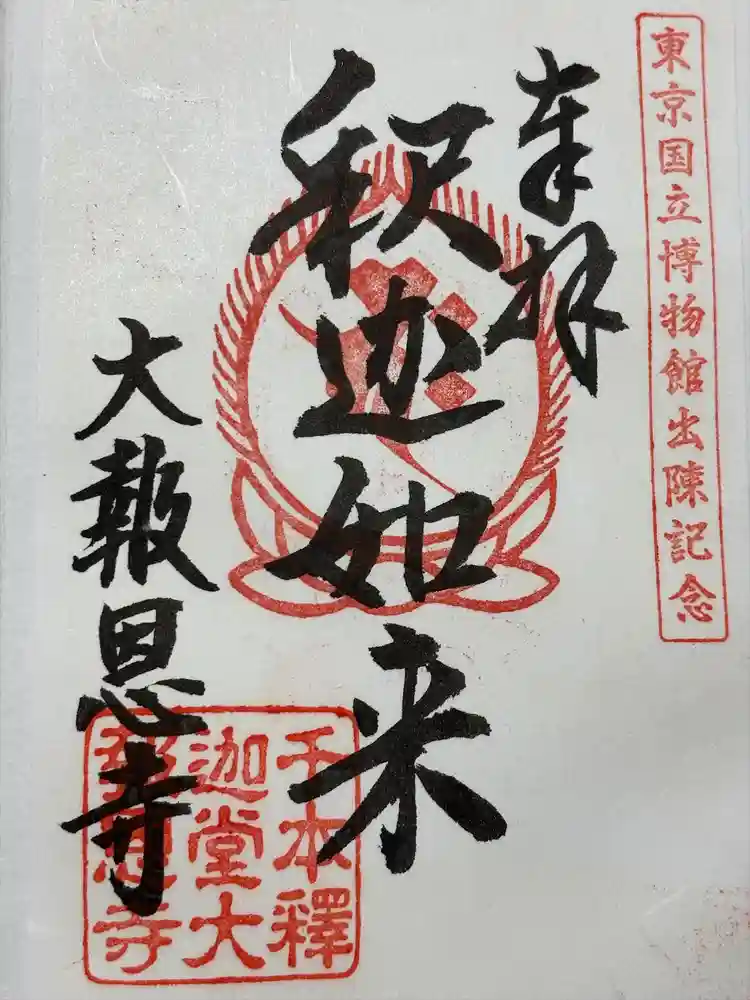 東京国立博物館出陳記念
奉拝
釈迦如来
大報恩寺
千本釋
迦堂大
報恩寺